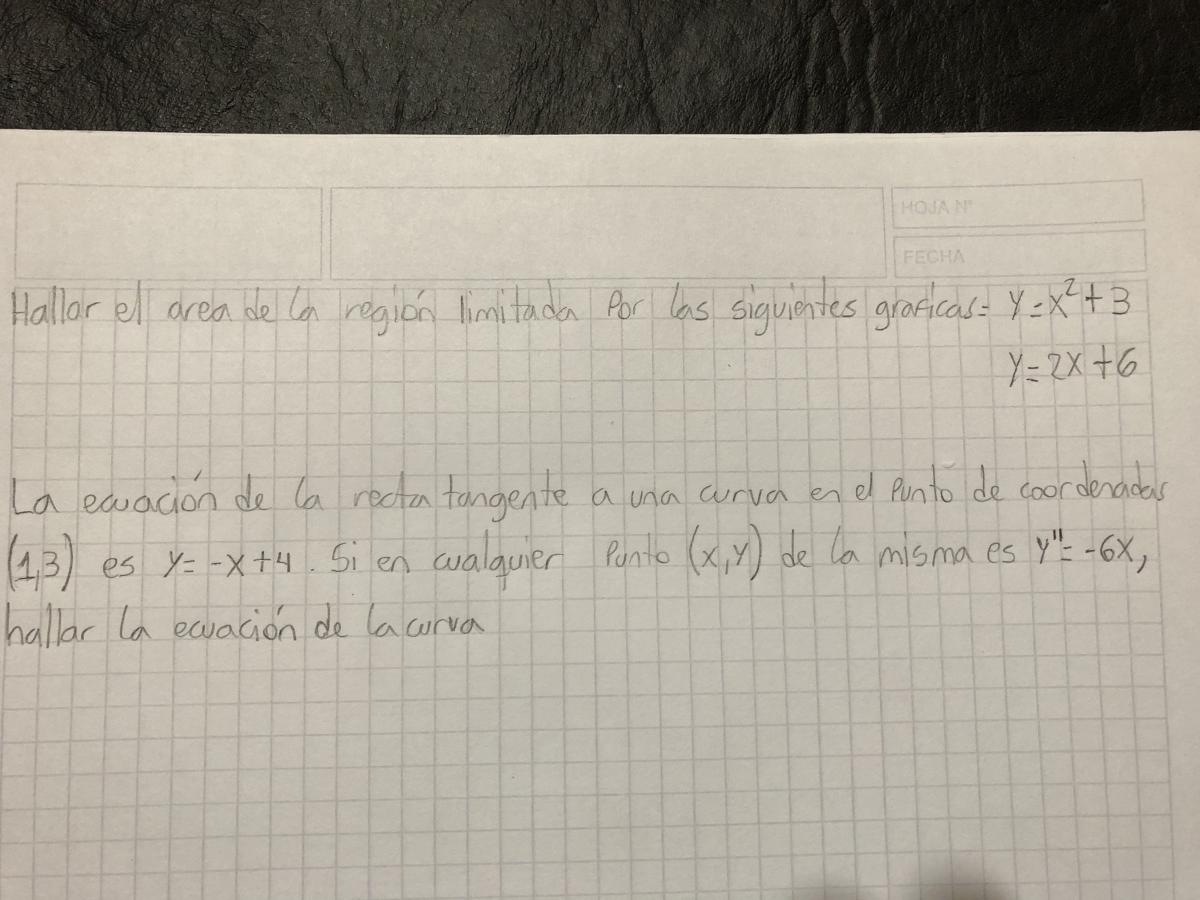 HOJA N°
FECHA
Hallar el area de la región limitada Por las siguientes graficas= y=x²+3
y=2x+6
La ecuación de la recta tangente a una curva en el Punto de coordenadas
(1,3) es y=-x+4. Si en cualquier Punto (x,y) de la misma es y''=-6x,
hallar la ecuación de la curva